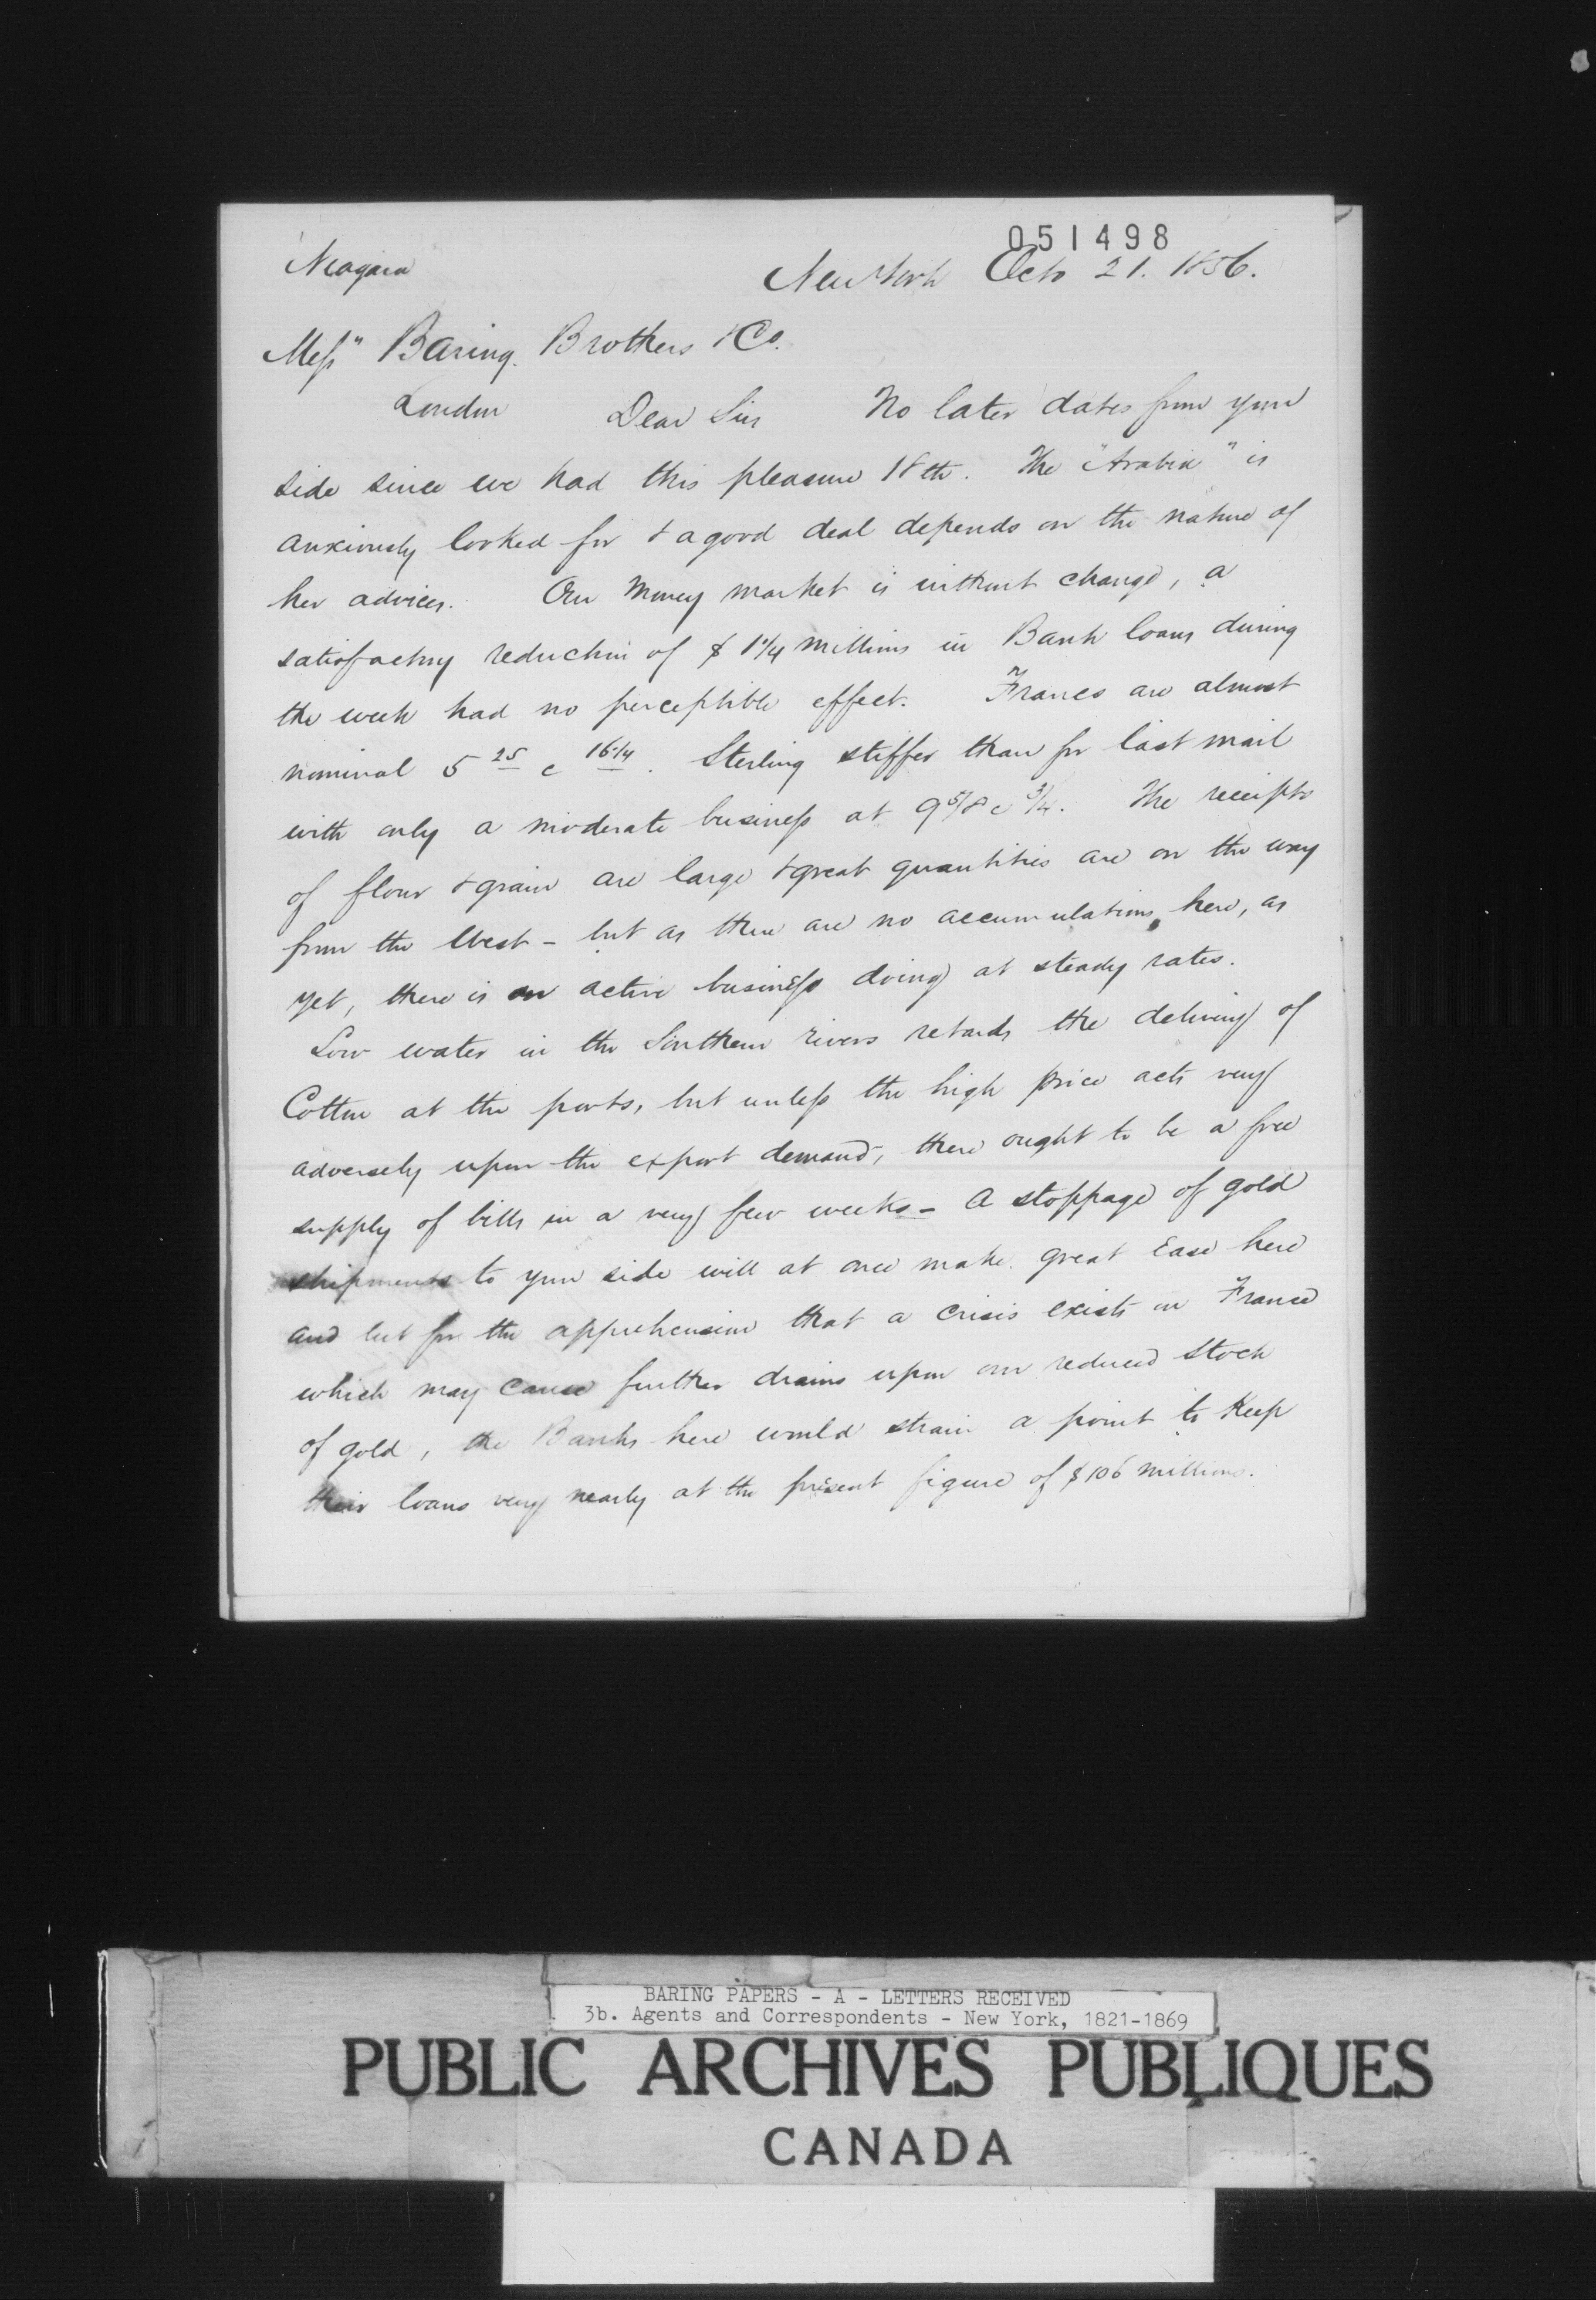 051498
Niagara
New York Octo 21. 1856.
Mess" Baring Brothers & Co.
London Dear Sirs No later dates from your
side since we had this pleasure 18th. The "Arabia" is
anxiously looked for & a good deal depends on the nature of
her advices. Our Money market is without change, a
satisfactory reduction of $ 1 1/4 millions in Bank loans during
the week had no perceptible effect. Francs are almost
nominal 5 25 @ 16 1/4. Sterling stiffer than for last mail
with only a moderate business at 9 5/8 @ 3/4. The receipts
of flour & grain are large & great quantities are on the way
from the West - but as there are no accumulations here, as
yet, there is an active business doing at steady rates.
Low water in the Southern rivers retards the delivery of
Cotton at the ports, but unless the high price acts very
adversely upon the export demand, there ought to be a free
supply of bills in a very few weeks - A stoppage of gold
shipments to your side will at once make great Ease here
and but for the apprehension that a Crisis exists in France
which may cause further drains upon our reduced stock
of gold, the Banks here would strain a point to Keep
their loans very nearly at the present figure of $ 106 millions.
BARING PAPERS - A - LETTERS RECEIVED
3b. Agents and Correspondents - New York, 1821-1869
PUBLIC ARCHIVES PUBLIQUES
CANADA